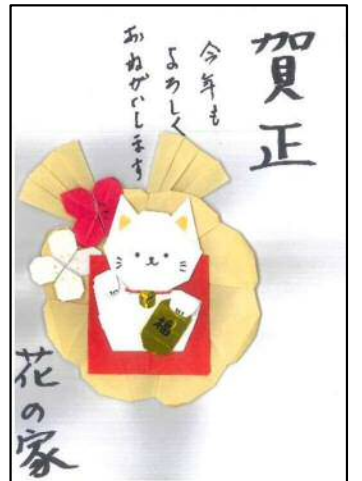 賀正
今年も
よろしく
おねがいします
福
花の家